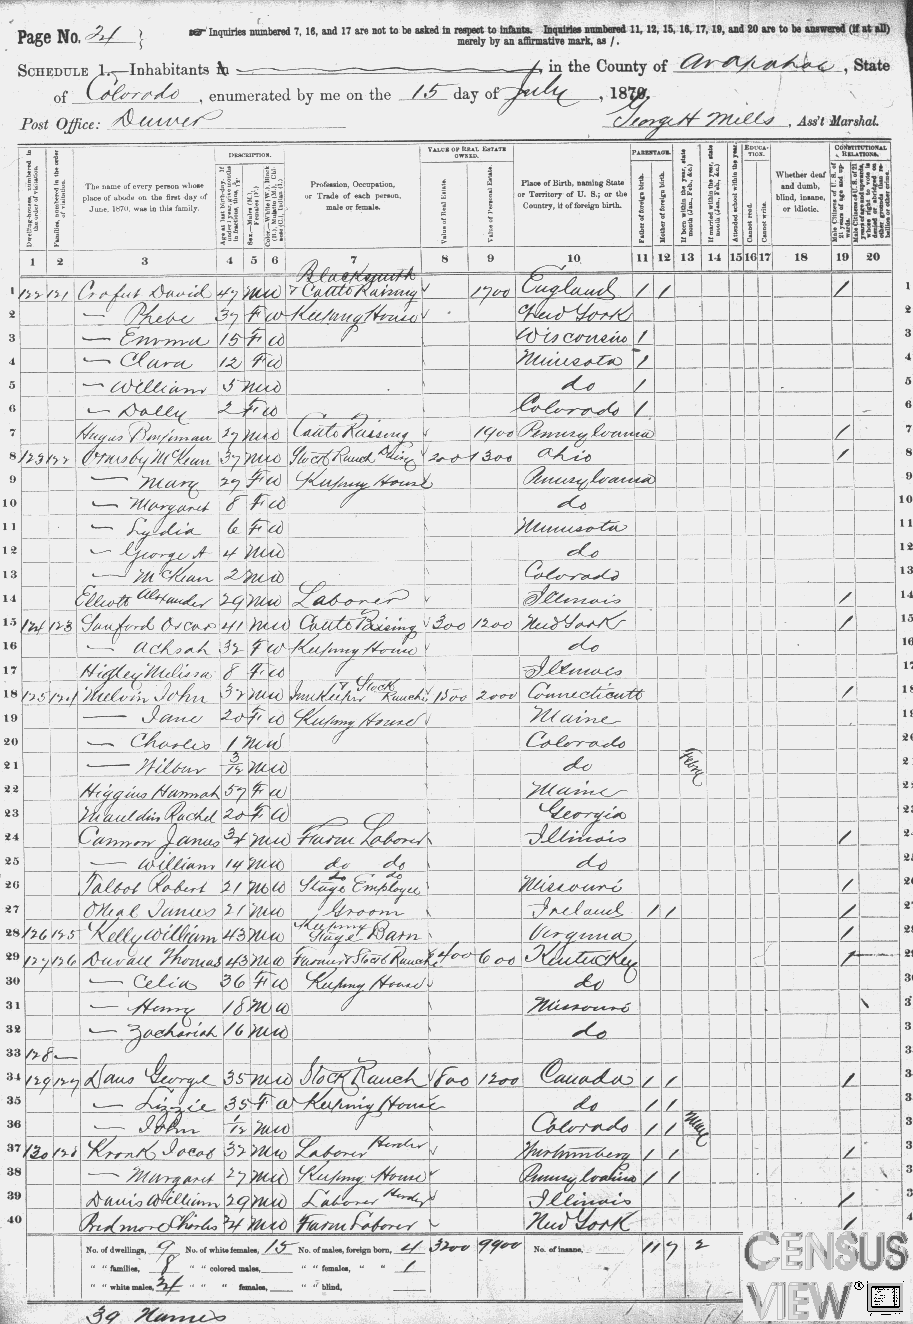 Page No. 24
Inquiries numbered 7, 16, and 17 are not to be asked in respect to infants. Inquiries numbered 11, 12, 15, 16, 17, 19, and 20 are to be answered (if at all)
merely by an affirmative mark, as /.
SCHEDULE 1.—Inhabitants in , in the County of Arapahoe, State
of Colorado, enumerated by me on the 15 day of July, 1870.
Post Office: Denver George H Mills, Ass't Marshal.
DESCRIPTION. VALUE OF REAL ESTATE OWNED. PARENTAGE. EDUCATION. CONSTITUTIONAL RELATIONS.
Dwelling-houses, numbered in the order of visitation.
Families, numbered in the order of visitation.
The name of every person whose place of abode on the first day of June, 1870, was in this family.
Profession, Occupation, or Trade of each person, male or female.
Value of Real Estate.
Value of Personal Estate.
Place of Birth, naming State or Territory of U. S.; or the Country, if of foreign birth.
Father of foreign birth.
Mother of foreign birth.
Attended school within the year.
Cannot read.
Cannot write.
Whether deaf and dumb, blind, insane, or idiotic.
1 2 3 4 5 6 7 8 9 10 11 12 13 14 15 16 17 18 19 20
Blacksmith
1 122 121 Crofut David 47 M W & Cattle Raising 1700 England / / / 1
2 — Phebe 37 F W Keeping House New York 2
3 — Emma 15 F W Wisconsin / 3
4 — Clara 12 F W Minesota / 4
5 — William 5 M W do / 5
6 — Dolly 2 F W Colorado / 6
7 Benjiman 27 M W Cattle Raising 1900 Pennsylvania / 7
8 123 122 Ormsby McKean 37 M W Stock Ranch 200 1300 Ohio / 8
9 — Mary 27 F W Keeping House Pennsylvania 9
10 — Margaret 8 F W do 10
11 — Lydia 6 F W Minnesota 11
12 — George A 4 M W do 12
13 — McKean 2 M W Colorado 13
14 Elliott Alexander 29 M W Laborer Illinois / 14
15 124 123 Sanford Orcar 41 M W Cattle Raising 300 1200 New York / 15
16 — Achsah 32 F W Keeping House do 16
17 Higley Melissa 8 F W Illinois 17
18 125 124 Melvin John 32 M W Inn Keeper & Stock Ranche 1500 2000 Connecticutt / 18
19 — Jane 20 F W Keeping House Maine 19
20 — Charles 1 M W Colorado
21 — Wilbur 3/12 M W do
22 Higgins Hannah 57 F W Maine
23 Mauldin Rachel 20 F W Georgia
24 Cannon James 34 M W Farm Laborer Illinois /
25 — William 14 M W do do do
26 Talbot Robert 21 M W Stage Employee Missouri /
27 ONeal James 21 M W Groom Ireland / / /
28 126 125 Kelly William 43 M W Keeping Stage Barn Virginia /
29 127 126 Duvall Thomas 43 M W Farmer & Stock Ranch 400 600 Kentuckey /
30 — Celia 36 F W Keeping House do
31 — Henry 18 M W Missouri
32 — Zachariah 16 M W do
33 128 —
34 129 127 George 35 M W Stock Ranch 800 1200 Canada / / /
35 — Lizzie 35 F W Keeping House do / /
36 — John 1/12 M W Colorado / /
37 130 128 Kronk Jacob 32 M W Laborer Herder Wurtemberg / / /
38 — Margaret 27 M W Keeping House Pennsylvania / /
39 Davis William 29 M W Laborer Herder Illinois /
40 Charles 24 M W Farm Laborer New York /
No. of dwellings, 9 No. of white females, 15 No. of males, foreign born, 4 3200 9900 No. of insane, 11 9 2
" " families, 8 " " colored males, " " females, " " 1
" " white males, 24 " " " females, " " blind,
39 Names
CENSUS
VIEW®